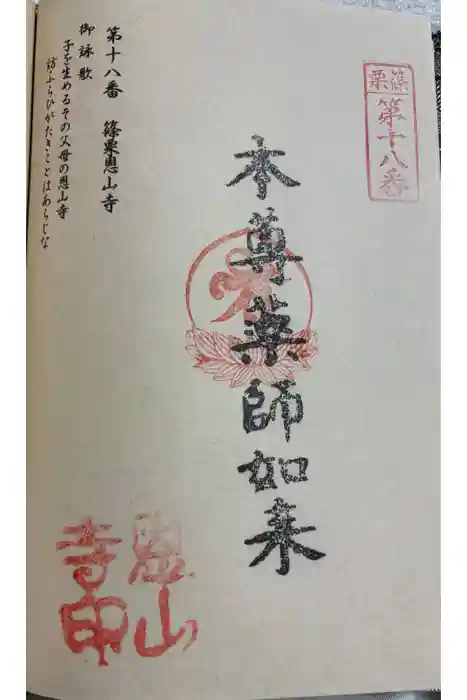 篠栗
第十八番
本尊薬師如来
恩山
寺印
第十八番　篠栗恩山寺
御詠歌
子を生めるその父母の恩山寺
訪ふらひがたきことはあらじな